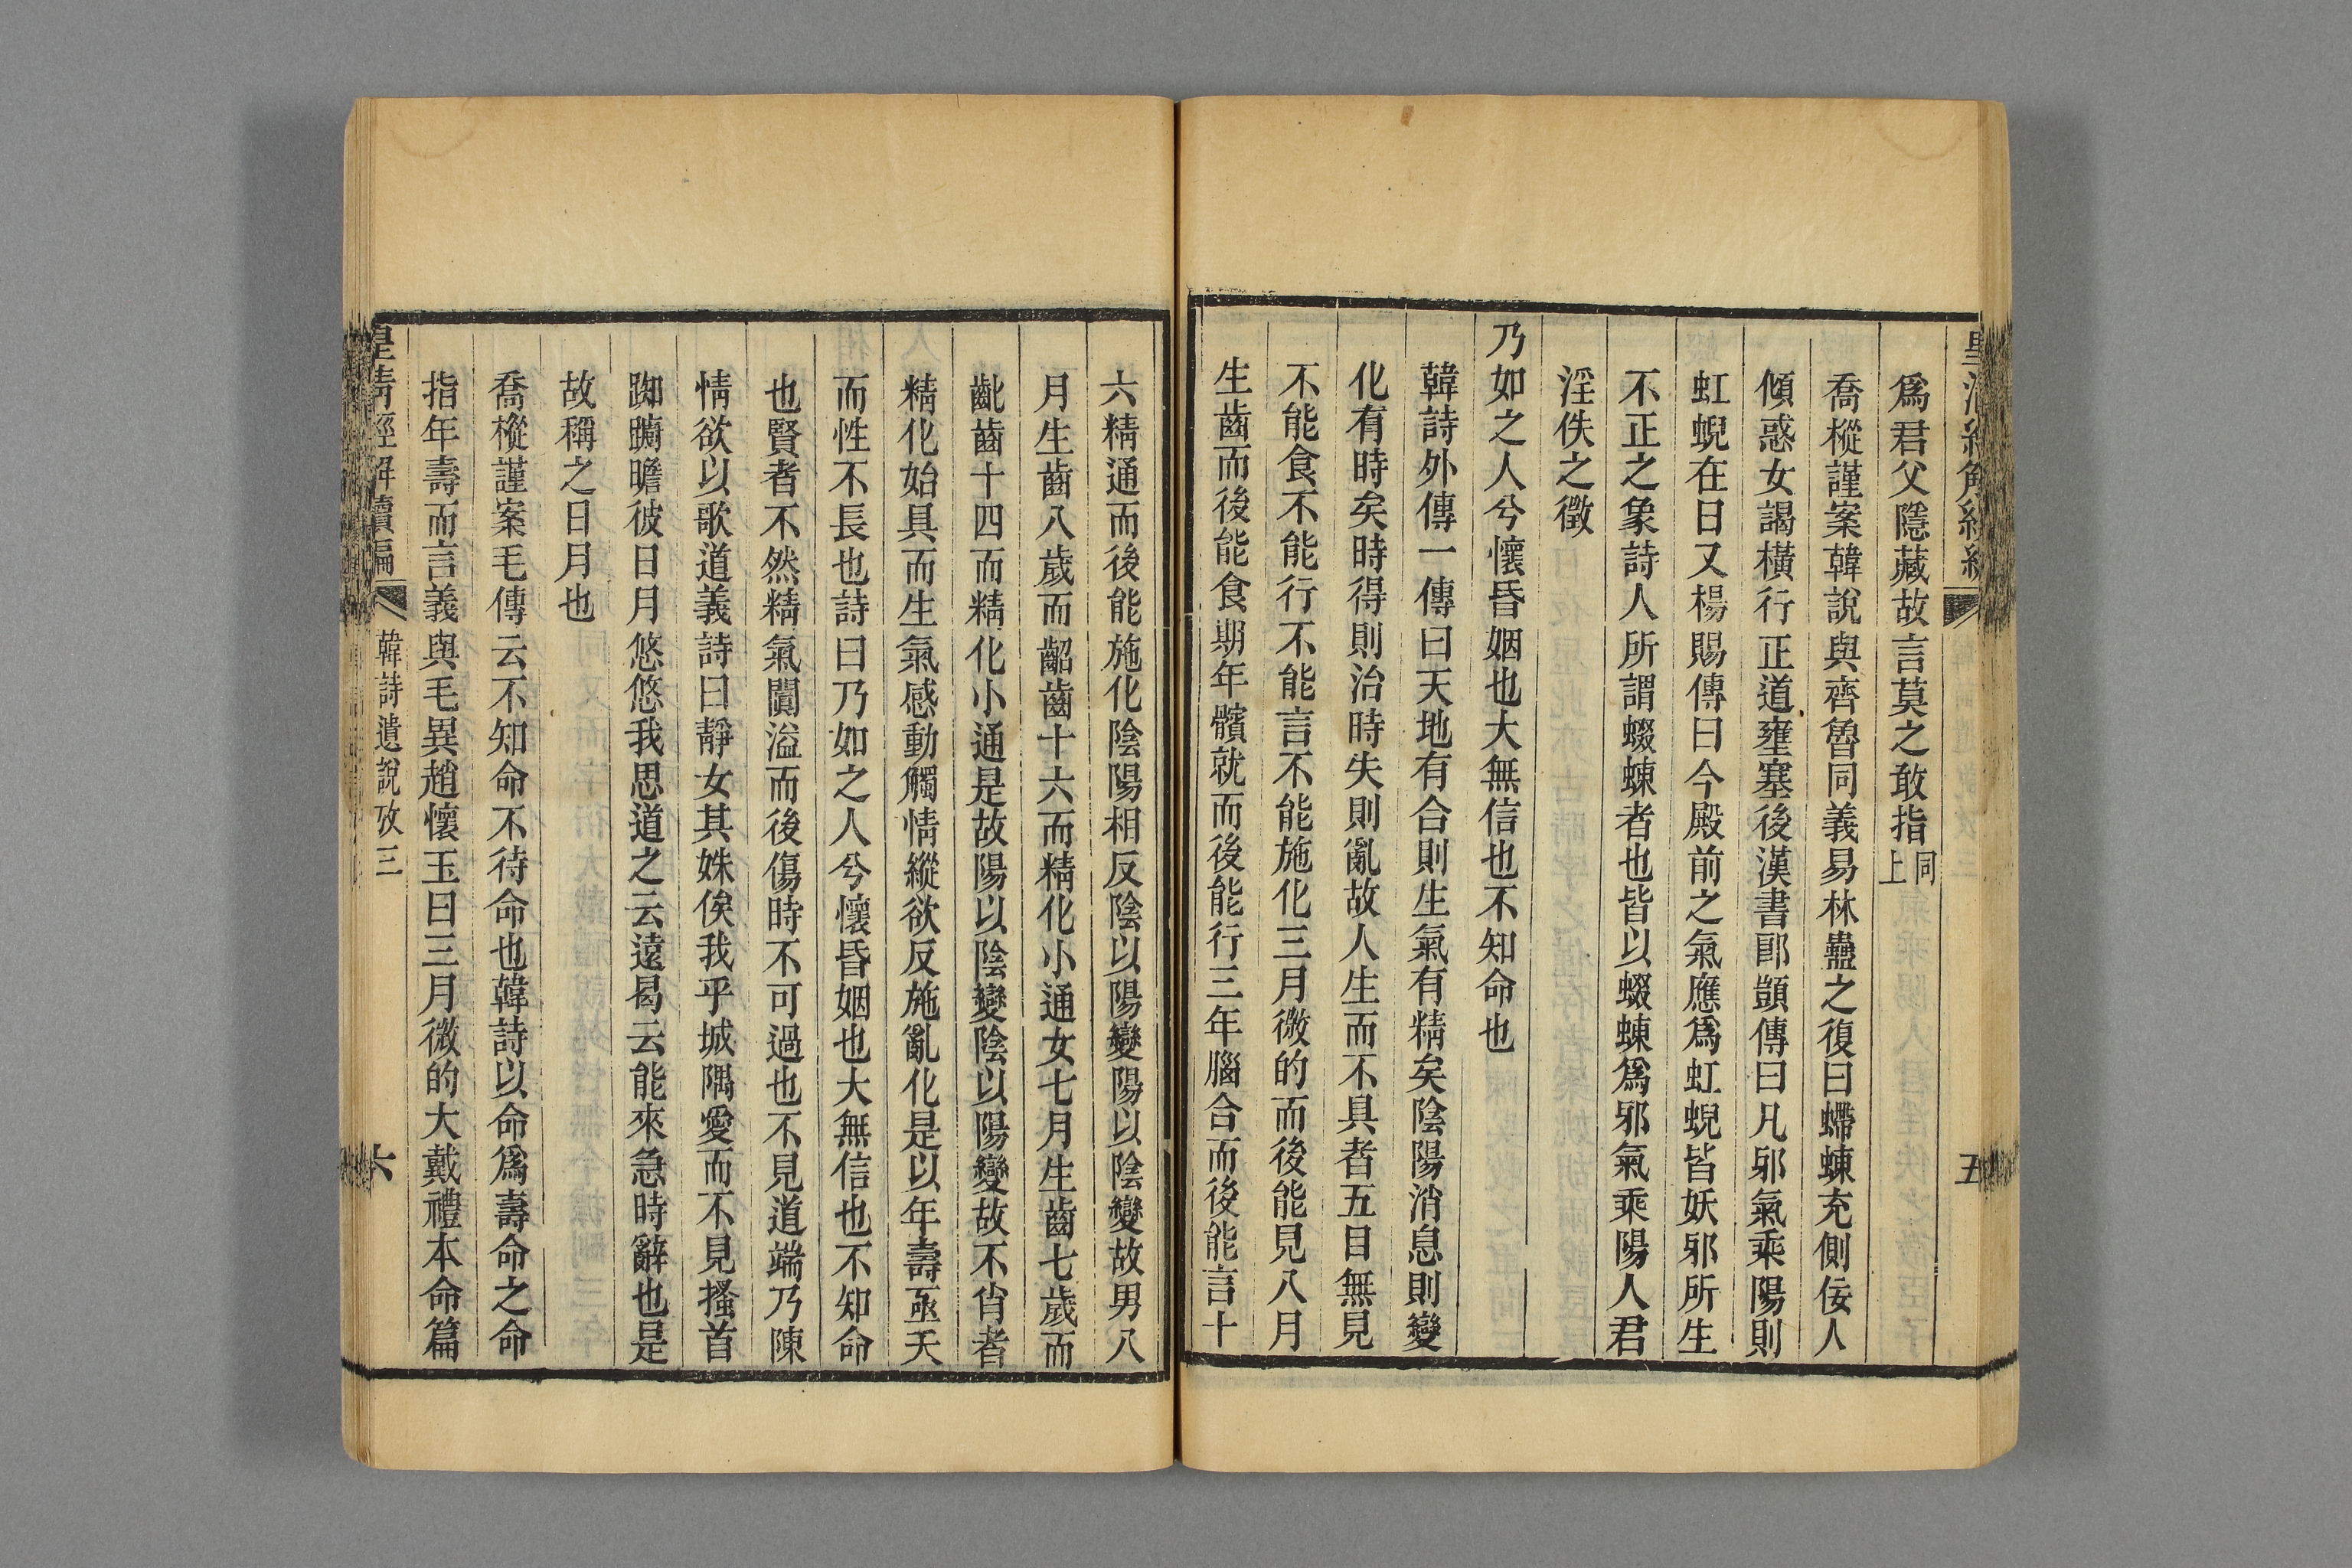 皇清經解續編
五
爲君父隱藏故言莫之敢指同上
喬樅謹案韓說與齊魯同義易林蠱之復曰螮蝀充側佞人
傾惑女謁橫行正道壅塞後漢書郎顗傳曰凡邪氣乘陽則
虹蜺在日又楊賜傳曰今殿前之氣應爲虹蜺皆妖邪所生
不正之象詩人所謂蝃蝀者也皆以蝃蝀爲邪氣乘陽人君
淫佚之徵
乃如之人兮懷昏姻也大無信也不知命也
韓詩外傳一傳曰天地有合則生氣有精矣陰陽消息則變
化有時矣時得則治時失則亂故人生而不具者五目無見
不能食不能行不能言不能施化三月微的而後能見八月
生齒而後能食期年髕就而後能行三年腦合而後能言十
六精通而後能施化陰陽相反陰以陽變陽以陰變故男八
月生齒八歲而齠齒十六而精化小通女七月生齒七歲而
齔齒十四而精化小通是故陽以陰變陰以陽變故不肖者
精化始具而生氣感動觸情縱欲反施亂化是以年壽亟夭
而性不長也詩曰乃如之人兮懷昏姻也大無信也不知命
也賢者不然精氣闐溢而後傷時不可過也不見道端乃陳
情欲以歌道義詩曰靜女其姝俟我乎城隅愛而不見搔首
踟躕瞻彼日月悠悠我思道之云遠曷云能來急時辭也是
故稱之日月也
喬樅謹案毛傳云不知命不待命也韓詩以命爲壽命之命
指年壽而言義與毛異趙懷玉曰三月微的大戴禮本命篇
皇清經解續編
韓詩遺說攷三
六